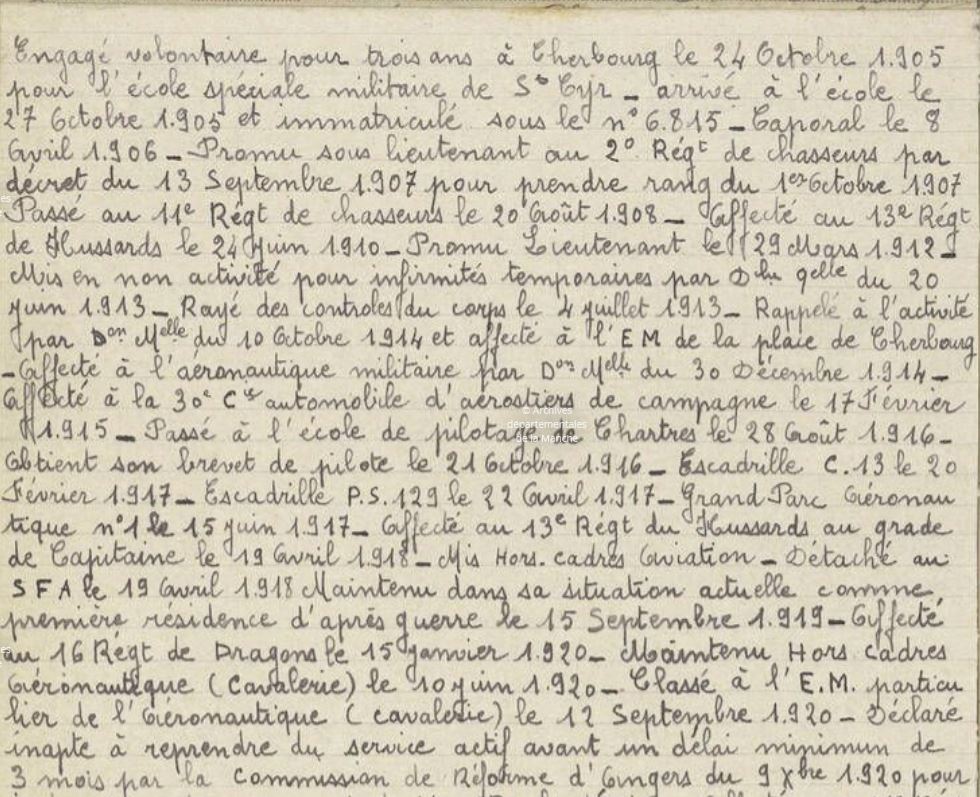 Engagé volontaire pour trois ans à Cherbourg le 24 Octobre 1.905
pour l'école spéciale militaire de St Cyr _ arrivé à l'école le
27 Octobre 1.905 et immatriculé sous le n° 6.815 _ Caporal le 8
Avril 1.906 _ Promu sous lieutenant au 2° Régt de chasseurs par
décret du 13 Septembre 1.907 pour prendre rang du 1er Octobre 1.907
Passé au 11e Régt de chasseurs le 20 Août 1.908 _ Affecté au 13e Régt
de Hussards le 24 Juin 1.910 _ Promu Lieutenant le 29 Mars 1.912 _
Mis en non activité pour infirmités temporaires par du 20
juin 1.913 _ Rayé des controles du corps le 4 juillet 1.913 _ Rappelé à l'activité
par Don Melle du 10 Octobre 1914 et affecté à l'E M de la place de Cherbourg
_ Affecté à l'aéronautique militaire par Don Melle du 30 Décembre 1.914 _
Affecté à la 30e Cie automobile d'aérostiers de campagne le 17 Février
1.915 _ Passé à l'école de pilotage de Chartres le 28 Août 1.916 _
© Archives
départementales
de la Manche
Obtient son brevet de pilote le 21 Octobre 1.916 _ Escadrille C.13 le 20
Février 1.917 _ Escadrille P.S. 129 le 22 Avril 1.917 _ Grand Parc Aéronau
tique n°1 le 15 Juin 1.917 _ Affecté au 13e Régt du Hussards au grade
de Capitaine le 19 Avril 1.918 _ Mis Hors. cadres Aviation _ Détaché au
S F A le 19 Avril 1.918 Maintenu dans sa situation actuelle comme
première résidence d'après guerre le 15 Septembre 1.919 _ Affecté
au 16 Régt de Dragons le 15 Janvier 1.920 _ Maintenu Hors cadres
Aéronautique (Cavalerie) le 10 juin 1.920 _ Classé à l'E.M. particu
lier de l'Aéronautique (cavalerie) le 12 Septembre 1.920 _ Déclaré
inapte à reprendre du service actif avant un délai minimun de
3 mois par la Commission de Réforme d'Angers du 9 Xbre 1.920 pour